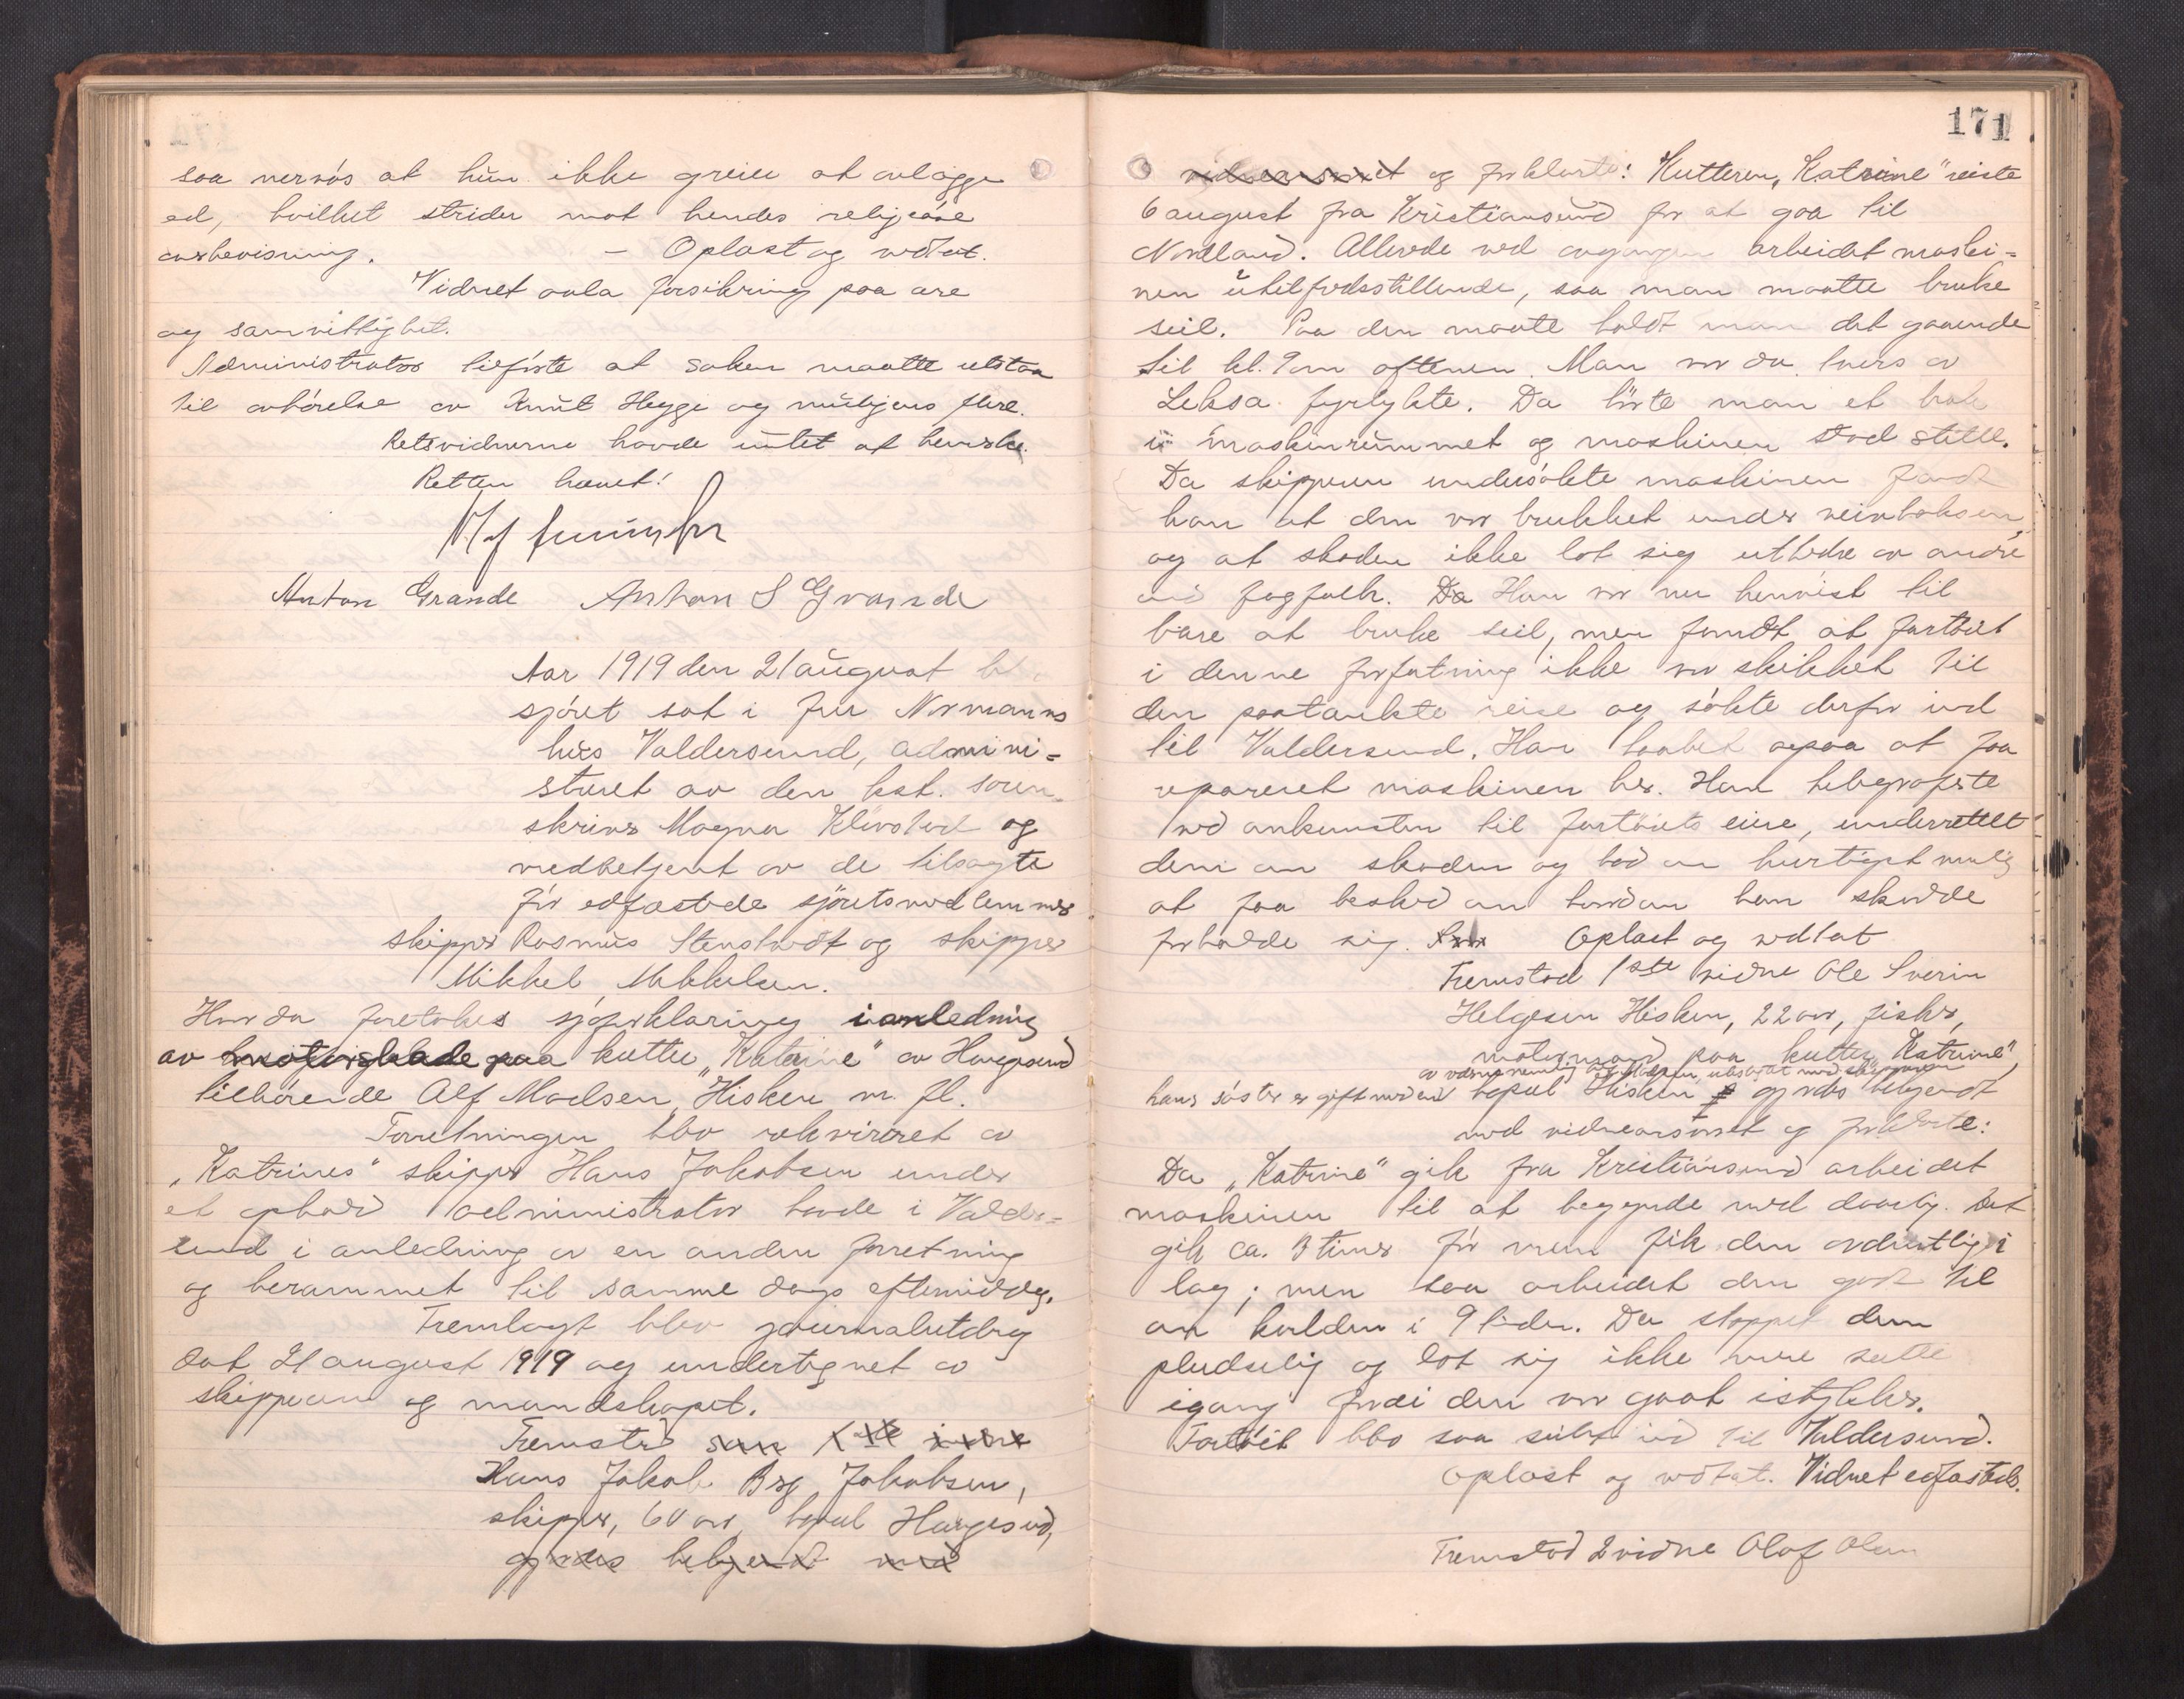 saa nervøs at hun ikke greier at avlægge
ed, hvilket strider mot hendes religiøse
overbevisning. – Oplæst og vedtat.
Vidnet avla forsikring paa ære
og samvittighet.
Administrator tilførte at saken maatte utstaa
til avhørelse av Knut Hegge og muligens flere.
Retsvidnerne havde intet at bemerke.
Retten hævet!
Anton Grande Anton S Grande
Aar 1919 den 21 august
sjøret sat i fru Normanns
hus Valdersund, admini-
streret av den kst. soren-
skriver Magne Kløvstad og
medbetjent av de tilsagte
før edfæstede sjøretsmedlemmer
skipper Rasmus Stenstvedt og skipper
Mikkel Mikkelsen.
Hvorda foretokes sjøforklaring i anledning
av motorskade paa kutter „Katrine" av Haugesund
tilhørende Alf Madsen, Hisken m. fl.
Forretningen blev rekvireret av
„Katrines" skipper Hans Jakobsen under
et ophold administrator havde i Valder-
sund i anledning av en anden forretning
og berammet til samme dags eftermiddag.
Fremlagt blev journalutdrag
dat 21 august 1919 og undertegnet av
skipperen og mandskapet.
Fremstod som 1ste vidne
Hans Jakob Berg Jakobsen,
skipper, 60 aar, bopæl Haugesund,
gjordes bekjendt med
171
vidneansvaret og forklarte: Kutteren „Katrine" reiste
6 august fra Kristiansund for at gaa til
Nordland. Allerede ved avgangen arbeidet maski-
nen utilfredsstillende, saa man maatte bruke
seil. Paa den maate holdt man det gaaende
til kl. 9 om aftenen. Man var da tvers av
Leksa fyrlykte. Da hørte man et brak
i maskinrummet og maskinen stod stille.
Da skipperen undersøkte maskinen fandt
han at den var brukket under veivboksen,
og at skaden ikke lot sig utbedre av andre
end fagfolk. Da Han var nu henvist til
bare at bruke seil, men fandt at fartøiet
i denne forfatning ikke var skikket til
den paatænkte reise og søkte derfor ind
til Valdersund. Han haabet ogsaa at faa
reparert maskinen her. Han telegraferte
ved ankomsten til fartøiets eiere, underrettet
dem om skaden og bad om hurtigst mulig
at faa besked om hvordan han skulde
forholde sig. Oplæst og vedtat
Fremstod 1ste vidne Ole Sverin
Helgesen Hisken, 22 aar, fisker,
motormand paa kutter „Katrine",
hans søster er gift med en bopæl Hisken gjordes bekjendt
med vidneansvaret og forklarte:
Da „Katrine" gik fra Kristiansund arbeidet
maskinen til at begynde med daarlig. Det
gik ca. 3 timer før man fik den ordentlig i
lag; men saa arbeidet den godt til
om kvelden i 9 tiden. Da stoppet den
pludselig og lot sig ikke mere sætte
igang fordi den var gaat istykker.
Fartøiet blev saa seilet ind til Valdersund.
Oplæst og vedtat. Vidnet edfæstedes.
Fremstod 2 vidne Olaf Olsen